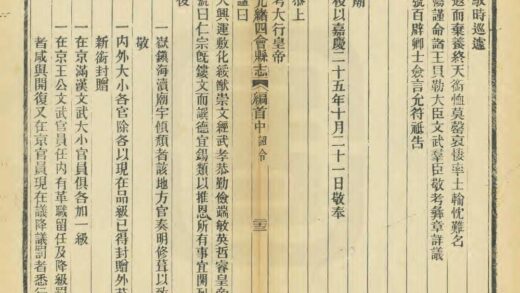 時巡遽
遐而棄養終天銜恤莫罄哀悽率土輸忱難名
謹命諸王貝勒大臣文武羣臣敬考彝章詳議
號百辟卿士僉言允符祗告
廟
稷以嘉慶二十五年十月二十一日敬奉
恭上
考大行皇帝
光緒四會縣志 編首中 詔令
謚曰
天興運敷化綏猷崇文經武孝恭勤儉端敏英哲睿皇帝
號曰仁宗爰鏤文而讓德宜錫類以推恩所有事宜開列
後
一嶽鎮海瀆廟宇傾頹者該地方官奏明修葺以致
敬
一內外大小各官除各以現在品級已得封贈外其
新銜封贈
一在京滿漢文武大小官員俱各加一級
一在京王公文武官員任內有革職留任及降級罰
者咸與開復又在京官員現在議降議罰者悉行